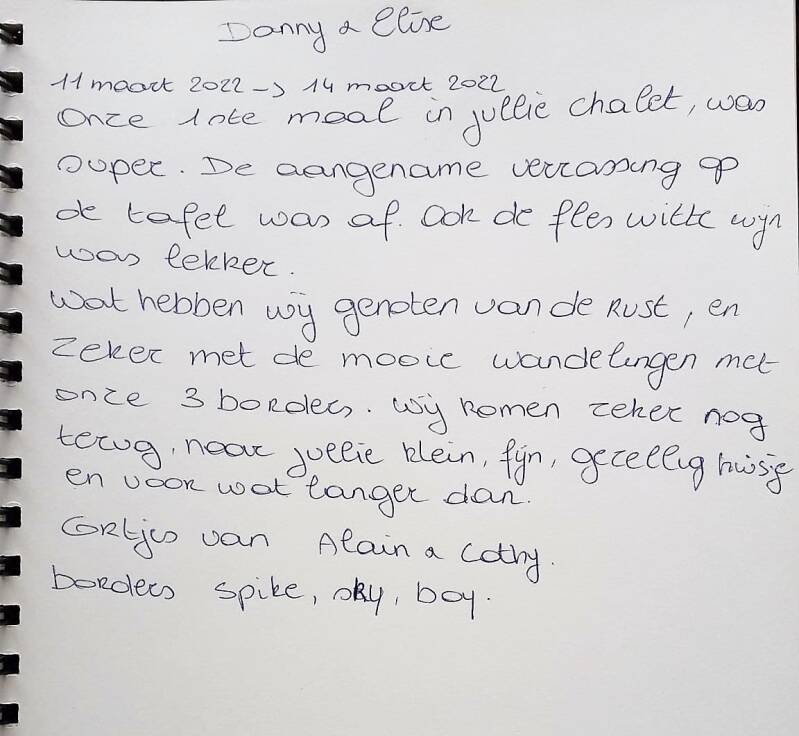 Danny & Elise
11 maart 2022 -> 14 maart 2022
Onze 1ste maal in jullie chalet, was
super. De aangename verrassing op
de tafel was af. Ook de fles witte wijn
was lekker.
Wat hebben wij genoten van de Rust, en
zeker met de mooie wandelingen met
onze 3 borders. Wij komen zeker nog
terug, naar jullie klein, fijn, gezellig huisje
en voor wat langer dan.
Grtjes van Alain & Cathy.
borders spike, sky, boy.